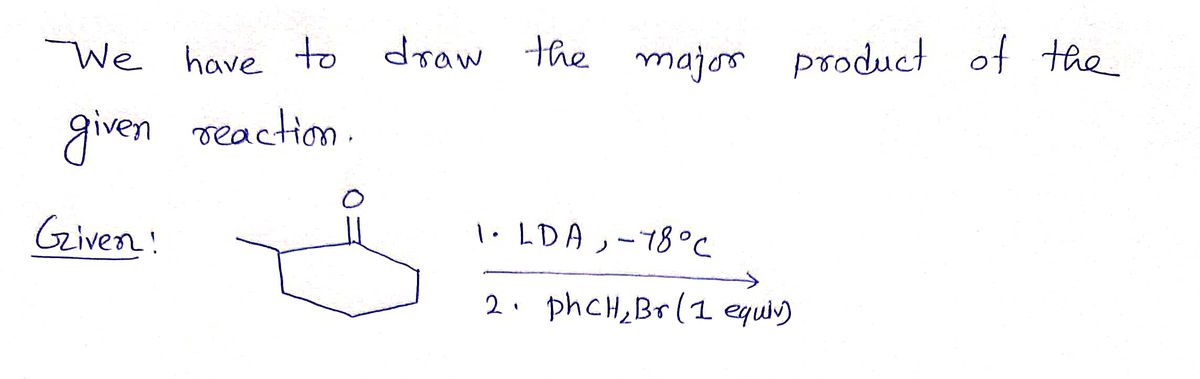 We have to draw the major product of the
given reaction.
O
Given: 1. LDA, -78°C
2. phCH₂Br (1 equiv)